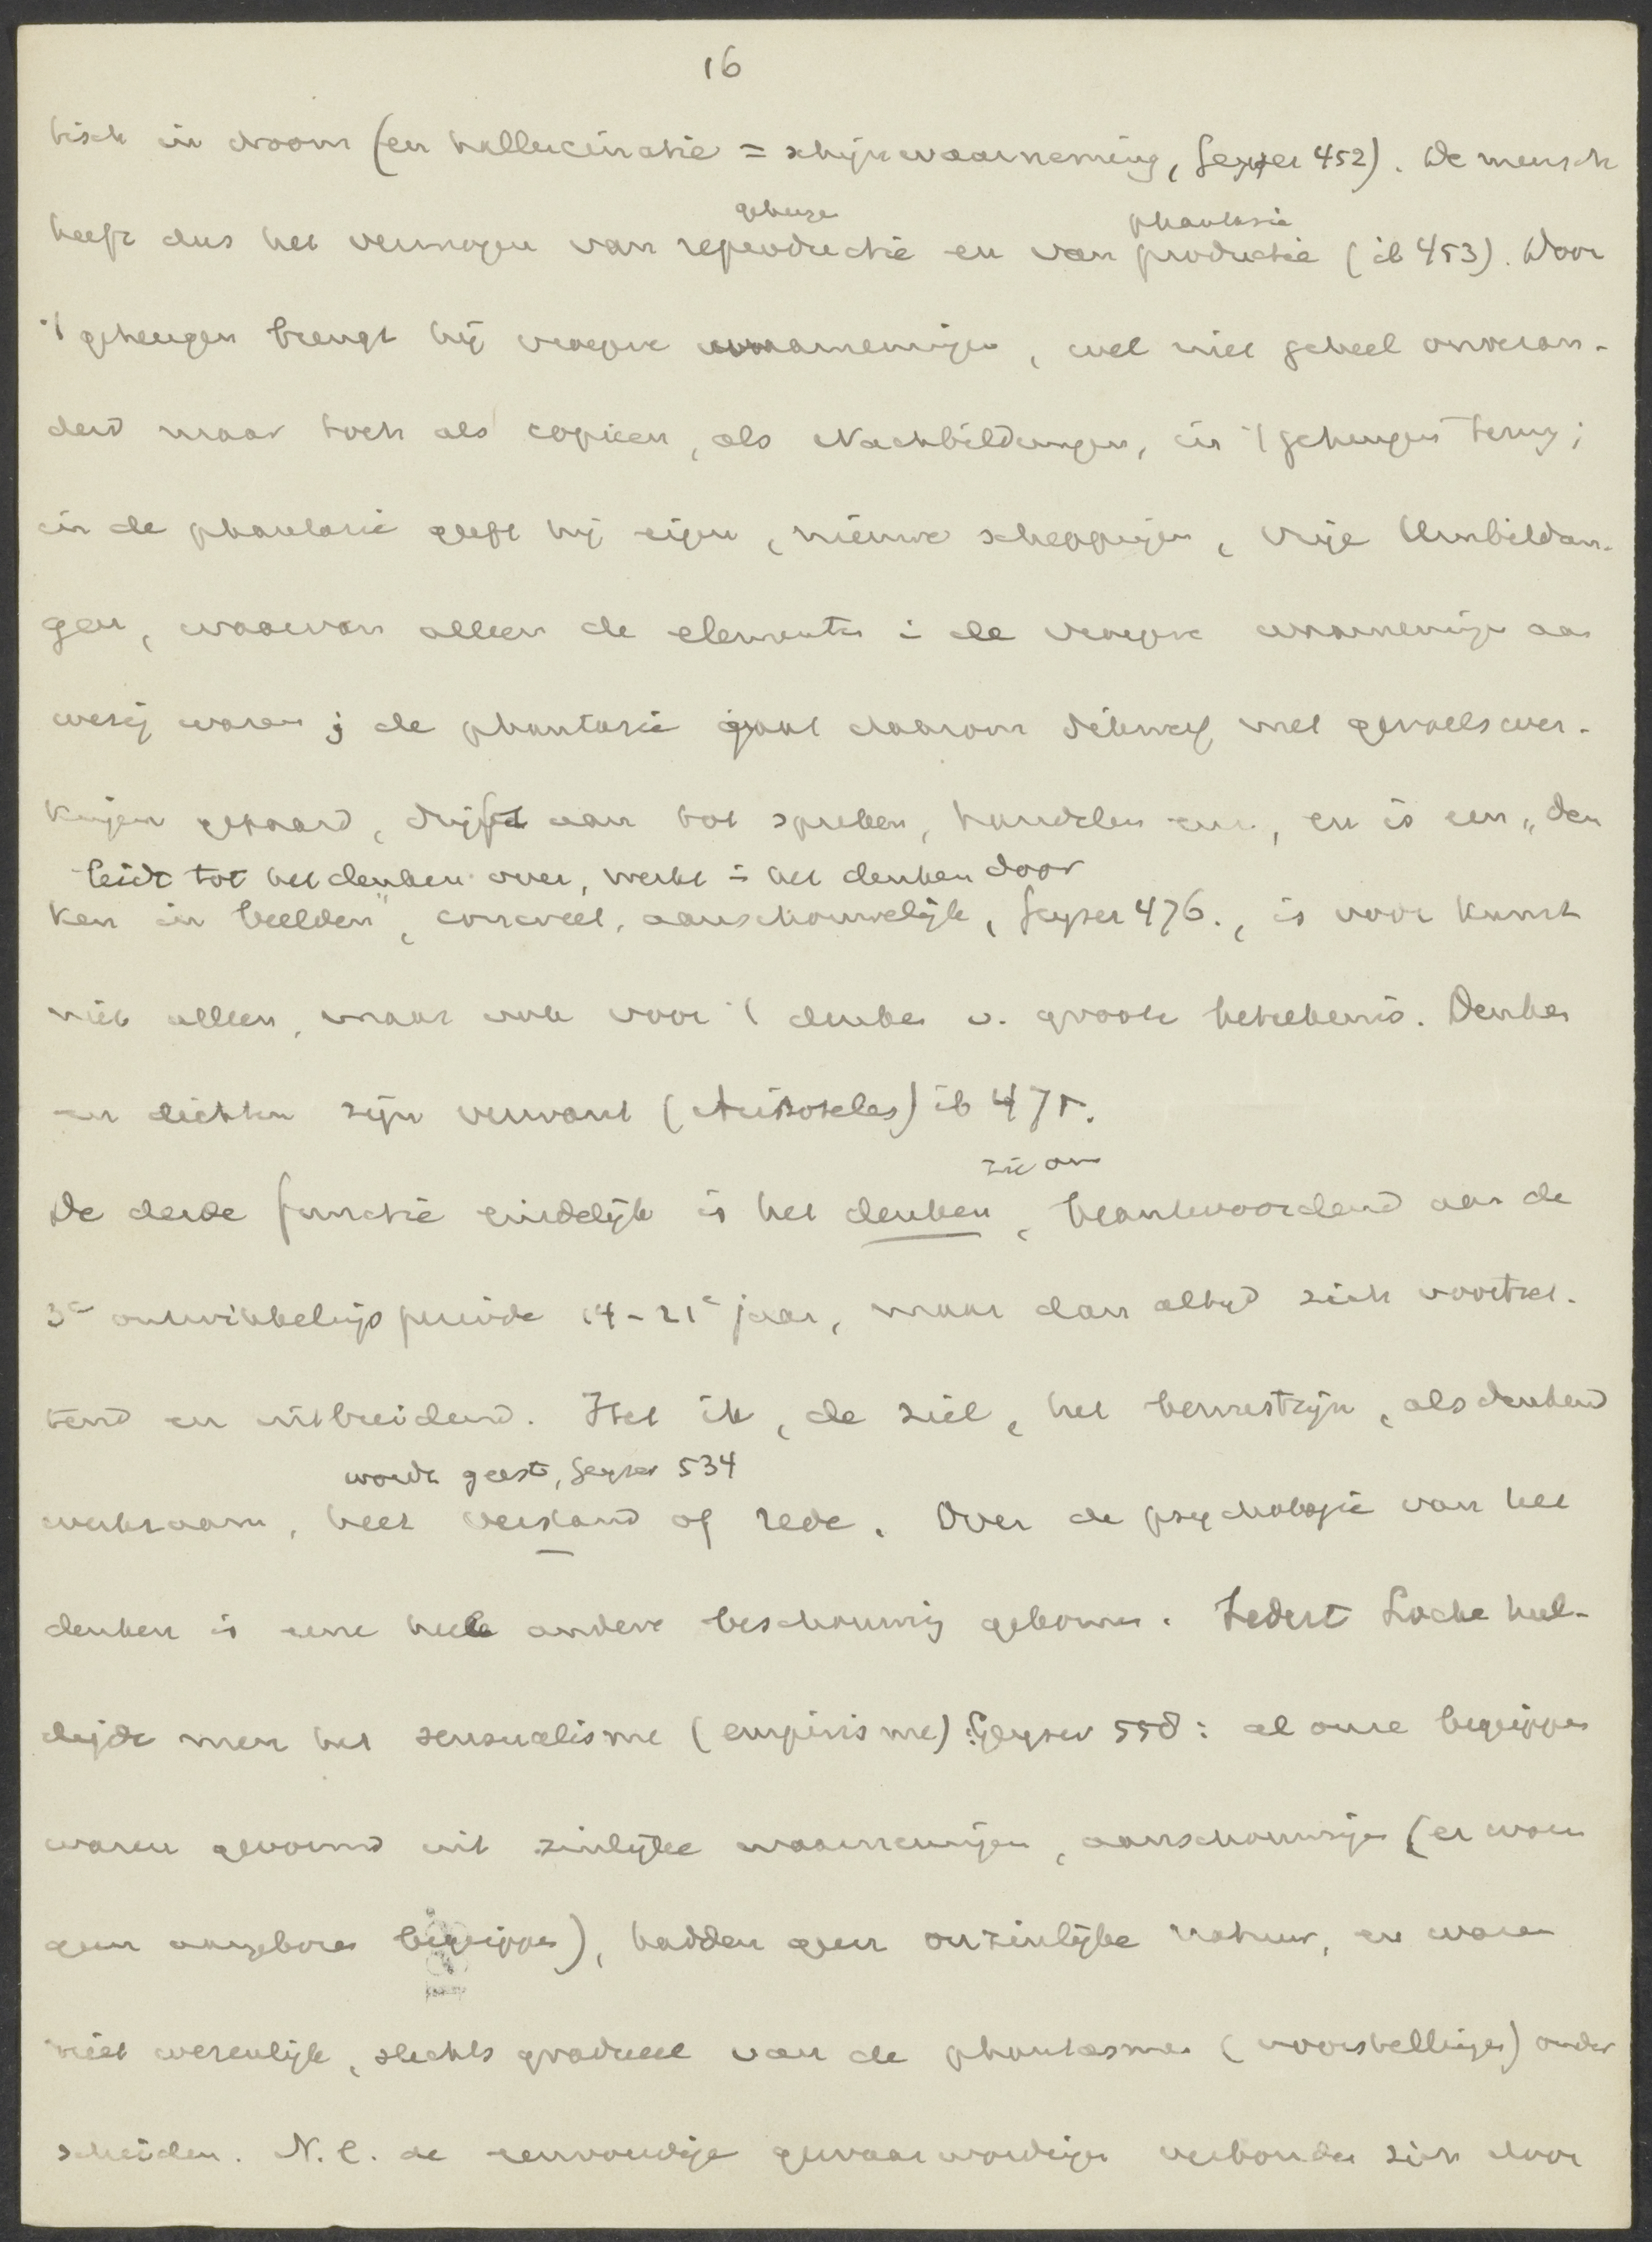 16
tisch in droom (en hallucinatie = schijnwaarneming, Geyser 452). De mensch
geheugen phantasie
heeft dus het vermogen van reproductie en van productie (ib 453). Door
't geheugen brengt hij vroegere waarnemingen, wel niet geheel onveran-
derd maar toch als copieen, als Nachbildungen, in 't geheugen terug;
in de phantasie geeft hij eigen, nieuwe scheppingen, vrije Umbildun-
gen, waarvan alleen de elementen i de vroegere waarnemingen aan
wezig waren; de phantasie gaat daarom dikwerf met gevoelswer-
kingen gepaard, drijft aan tot spreken, handelen enz., en is een „den
leidt tot het denken over, werkt i het denken door
ken in beelden", concreet, aanschouwelijk, Geyser 476., is voor kunst
niet alleen, maar ook voor 't denken v. groote beteekenis. Denken
en dichten zijn verwant (Aristoteles) ib 475.
zie om
De derde functie eindelijk is het denken, beantwoordend aan de
3e ontwikkelingsperiode 14-21e jaar, maar dan altijd zich voortzet-
tend en uitbreidend. Het ik, de ziel, het bewustzijn, als denkend
wordt geest, Geyser 534
werkzaam, heet verstand of rede. Over de psychologie van het
denken is eene heele andere beschouwing gekomen. Sedert Locke hul-
digde men het sensualisme (empirisme): Geyser 558: al onze begrippen
waren gevormd uit zinlijke waarnemingen, aanschouwingen (er waren
geen aangeboren begrippen), hadden geen onzinlijke natuur, en waren
niet wezenlijk, slechts gradueel van de phantasmen (voorstellingen) onder
scheiden. N.l. de eenvoudige gewaarwordingen verbonden zich door